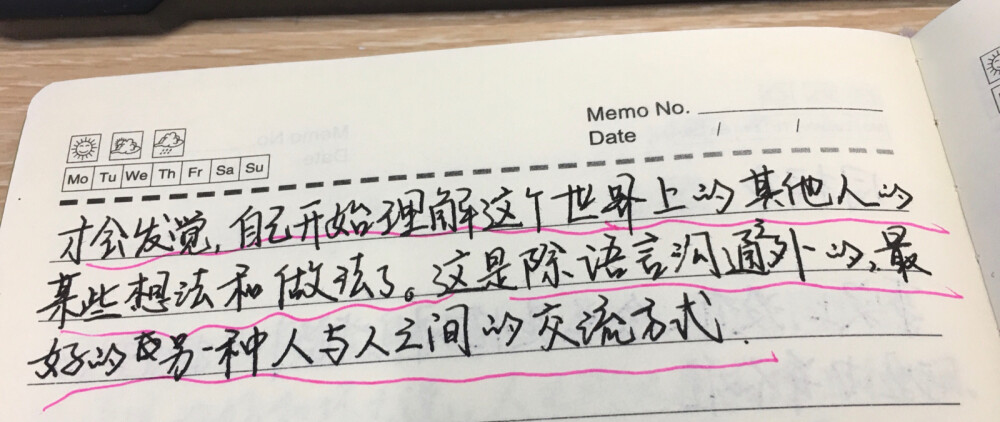 Memo No.
Date / /
Mo Tu We Th Fr Sa Su
才会发觉,自己开始理解这个世界上的其他人的
某些想法和做法了。这是除语言沟通外的,最
好的另一种人与人之间的交流方式.